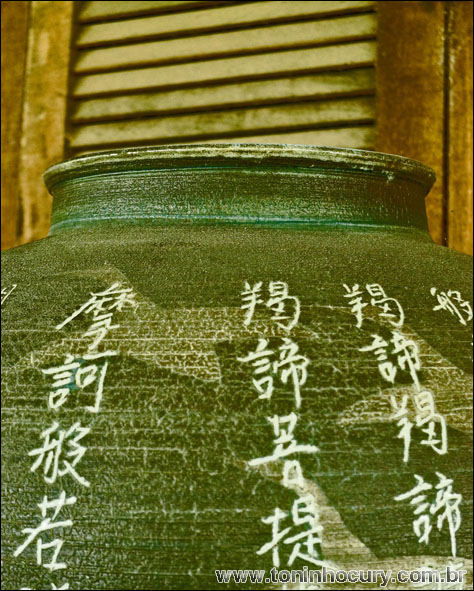 般
羯諦羯諦
羯諦菩提
摩訶般若
www.toninhocury.com.br